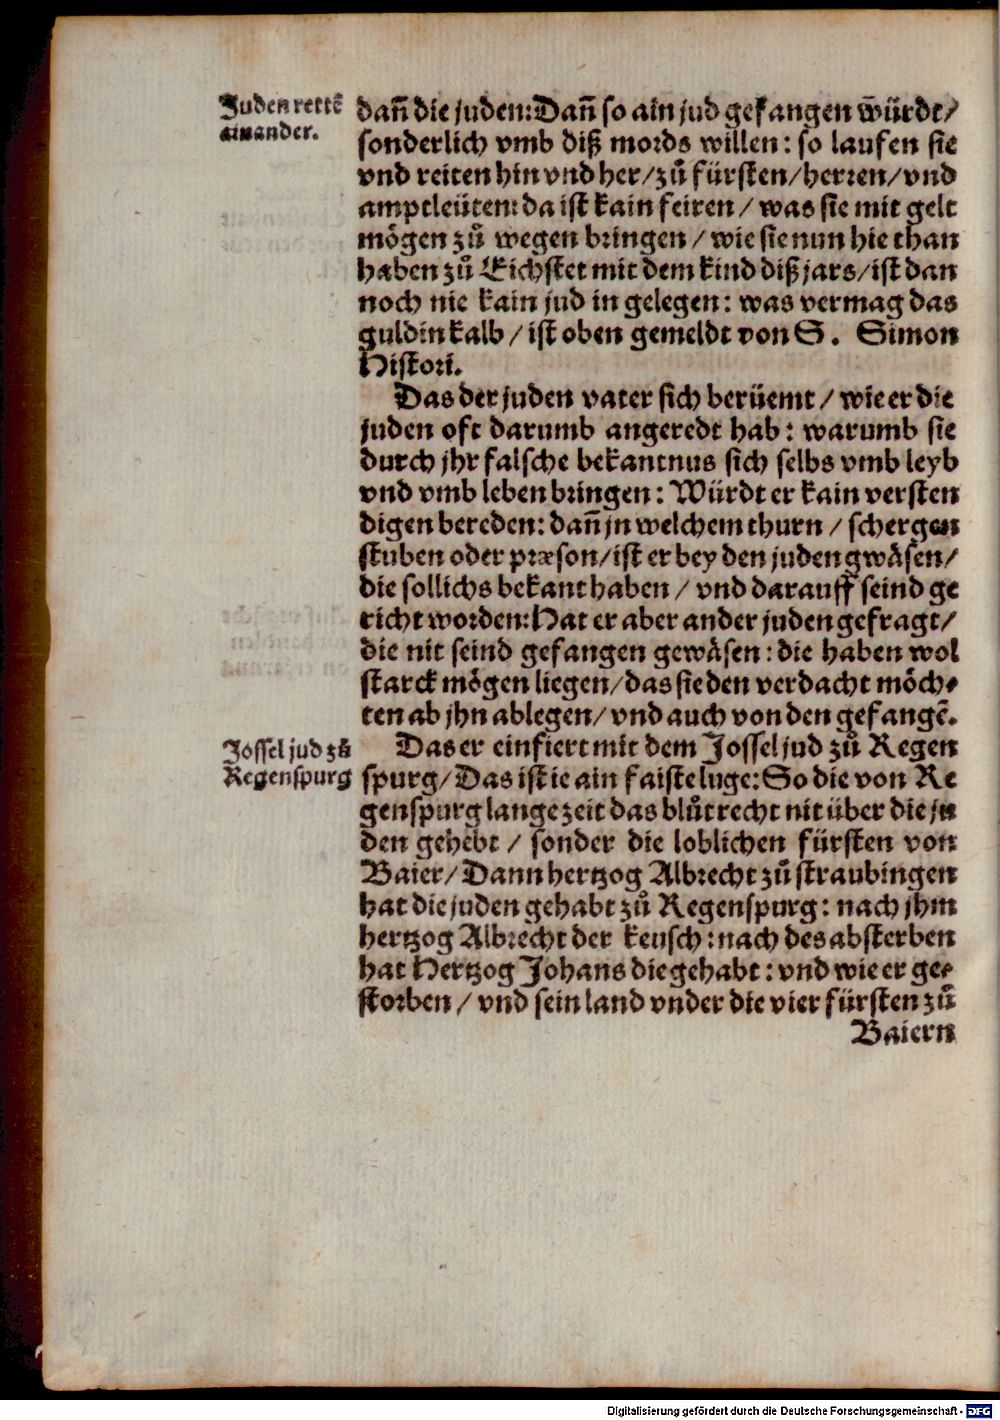 Juden rettē
ainander.
dañ die juden: Dañ so ain jud gefangen w̄ürdt/
sonderlich vmb diß mords willen: so laufen sie
vnd reiten hin vnd her/zů fürsten/herren/vnd
amptleüten: da ist kain feiren / was sie mit gelt
mögen zů wegen bringen / wie sie nun hie than
haben zů Eichstet mit dem kind diß jars/ist dan
noch nie kain jud in gelegen: was vermag das
guldin kalb / ist oben gemeldt von S. Simon
Histori.
Das der juden vater sich berüemt / wie er die
juden oft darumb angeredt hab: warumb sie
durch jhr falsche bekantnus sich selbs vmb leyb
vnd vmb leben bringen: Würdt er kain versten
digen bereden: dañ jn welchem thurn / schergen
stuben oder præson/ist er bey den juden gwäsen/
die sollichs bekant haben / vnd darauff seind ge
richt worden: Hat er aber ander juden gefragt/
die nit seind gefangen gewäsen: die haben wol
starck mögen liegen/das sie den verdacht möch⸗
ten ab jhn ablegen/ vnd auch von den gefangē.
Jossel jud zů
Regenspurg
Das er einfiert mit dem Jossel jud zů Regen
spurg/ Das ist ie ain faiste luge: So die von Re
genspurg lange zeit das blůtrecht nit über die ju
den gehebt / sonder die loblichen fürsten von
Baier/ Dann hertzog Albrecht zů straubingen
hat die juden gehabt zů Regenspurg: nach jhm
hertzog Albrecht der keusch: nach des absterben
hat Hertzog Johans die gehabt: vnd wie er ge⸗
storben / vnd sein land vnder die vier fürsten zů
Baiern
Digitalisierung gefördert durch die Deutsche Forschungsgemeinschaft - DFG